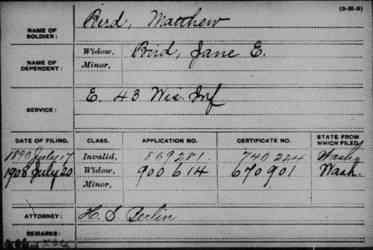 (3-35-3)
NAME OF SOLDIER: Bird, Matthew
NAME OF DEPENDENT: Widow, Bird, Jane E.
Minor,
SERVICE: E. 43 Wis. Inf
DATE OF FILING. CLASS. APPLICATION NO. CERTIFICATE NO. STATE FROM WHICH FILED.
1890 July 17 Invalid, 869281 740224 Wash
1908 July 20 Widow, 900614 670901 Wash.
Minor,
ATTORNEY: H. S. Berlin
REMARKS: